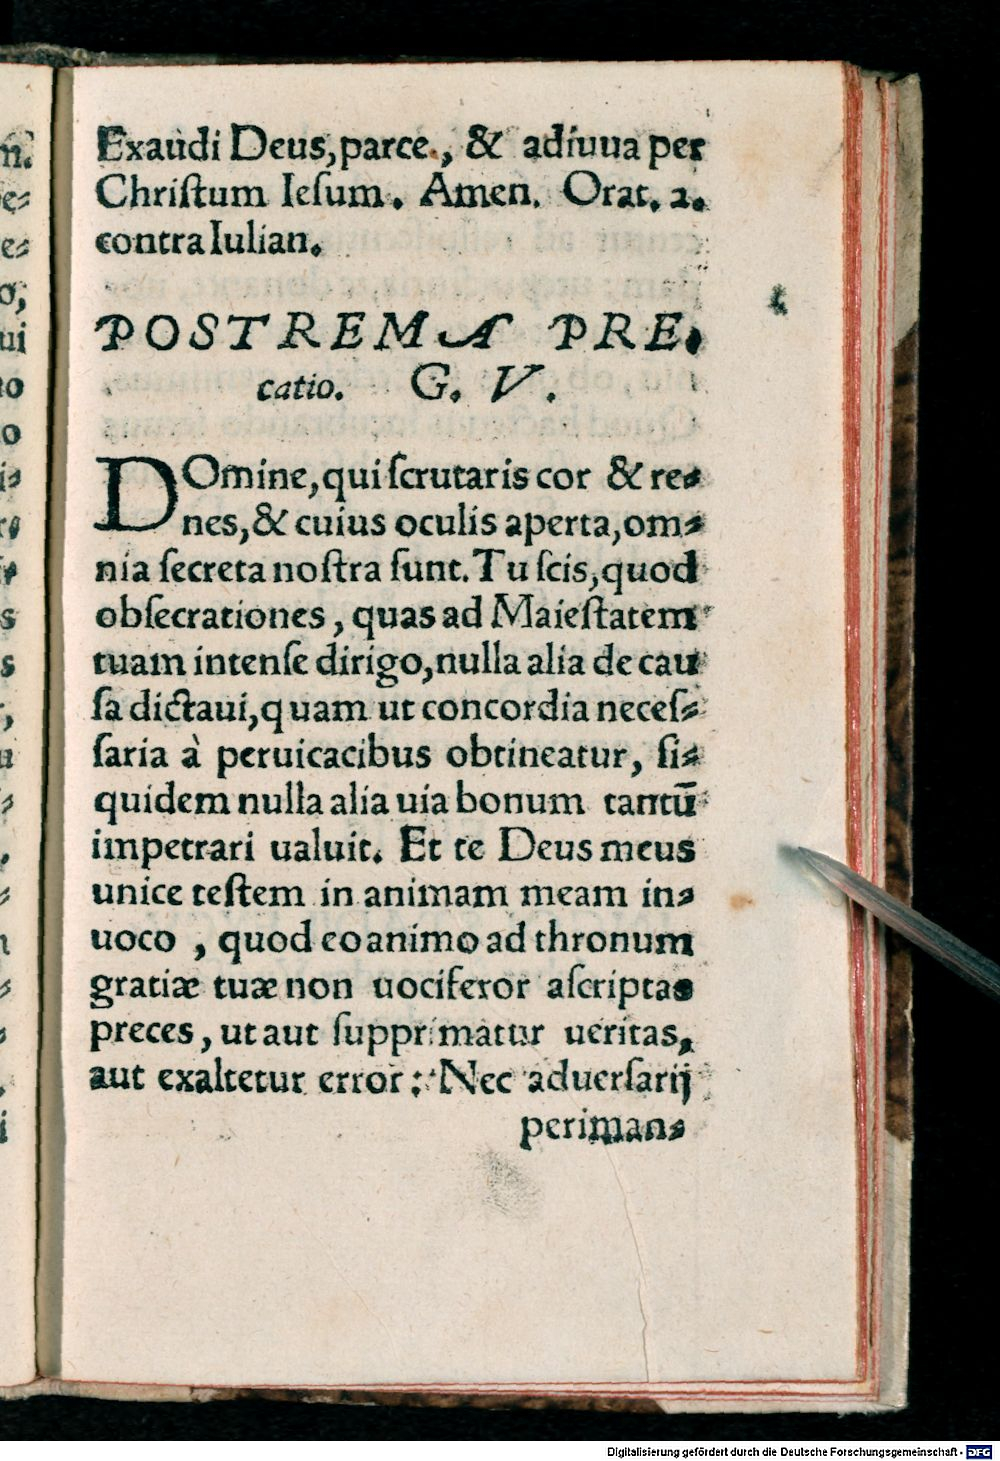 Exaudi Deus, parce., & adiuua per
Chriſtum Ieſum. Amen. Orat. 2.
contra Iulian.
POSTREMA PRE⸗
catio. G. V.
DOmine, qui ſcrutaris cor & re⸗
nes, & cuius oculis aperta, om⸗
nia ſecreta noſtra ſunt. Tu ſcis, quod
obſecrationes, quas ad Maieſtatem
tuam intenſe dirigo, nulla alia de cau
ſa dictaui, quam ut concordia neceſ⸗
ſaria à peruicacibus obtineatur, ſi⸗
quidem nulla alia uia bonum tantū
impetrari ualuit. Et te Deus meus
unice teſtem in animam meam in⸗
uoco, quod eo animo ad thronum
gratiæ tuæ non uociferor aſcriptas
preces, ut aut ſupprimatur ueritas,
aut exaltetur error: Nec aduerſarij
periman⸗
Digitalisierung gefördert durch die Deutsche Forschungsgemeinschaft - DFG